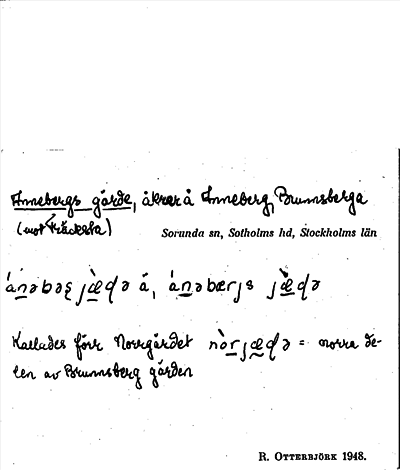 Annebergs gärde, åkrar å Anneberg, Brunnsberga
(mot Kräcksta)
Sorunda sn, Sotholms hd, Stockholms län
Kallades förr Norrgärdet = norra de-
len av Brunnsberg gärden
R. OTTERBJÖRK 1948.